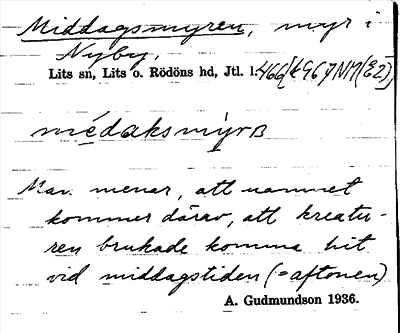 Middagsmyren, myr i
Nyby.
Lits sn, Lits o. Rödöns hd, Jtl. l.
médaksmỳrʙ
Man menar, att namnet
kommer därav, att kreatu-
ren brukade komma hit
vid middagstiden (=aftonen)
A. Gudmundson 1936.